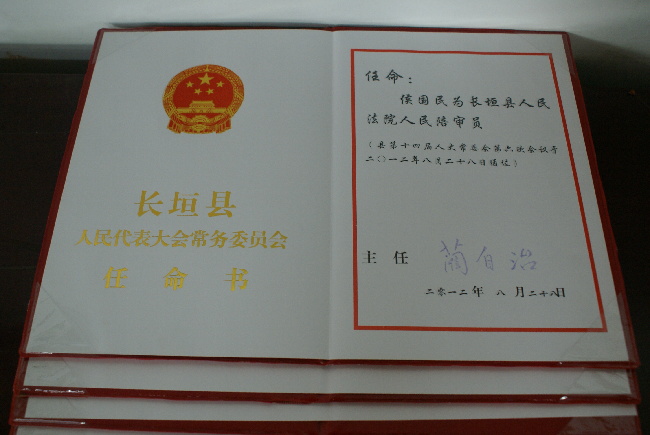 长垣县
人民代表大会常务委员会
任命书
任命：
侯国民为长垣县人民
法院人民陪审员
（县第十四届人大常委会第六次会议于
二〇一二年八月二十八日通过）
主任 蔺自治
二零一二年 八 月二十八日